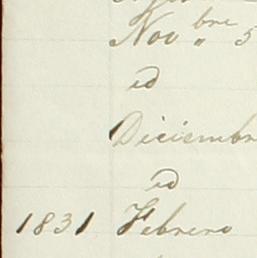 Nov.bre " 5
id
Diciembre
id
1831 Febrero